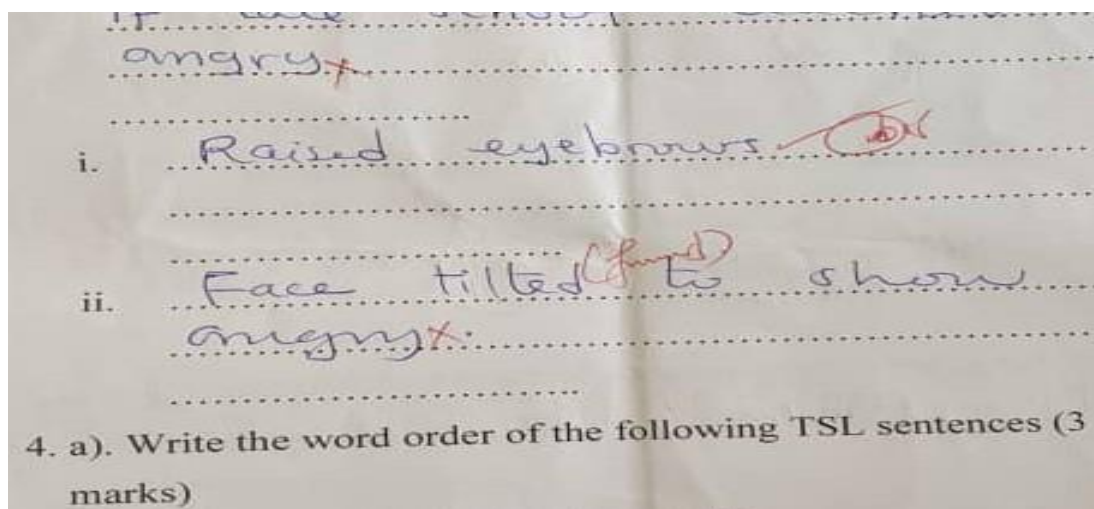 If late school
angry x
i. Raised eyebrows
ii. Face tilted to show
angry x
4. a). Write the word order of the following TSL sentences (3
marks)